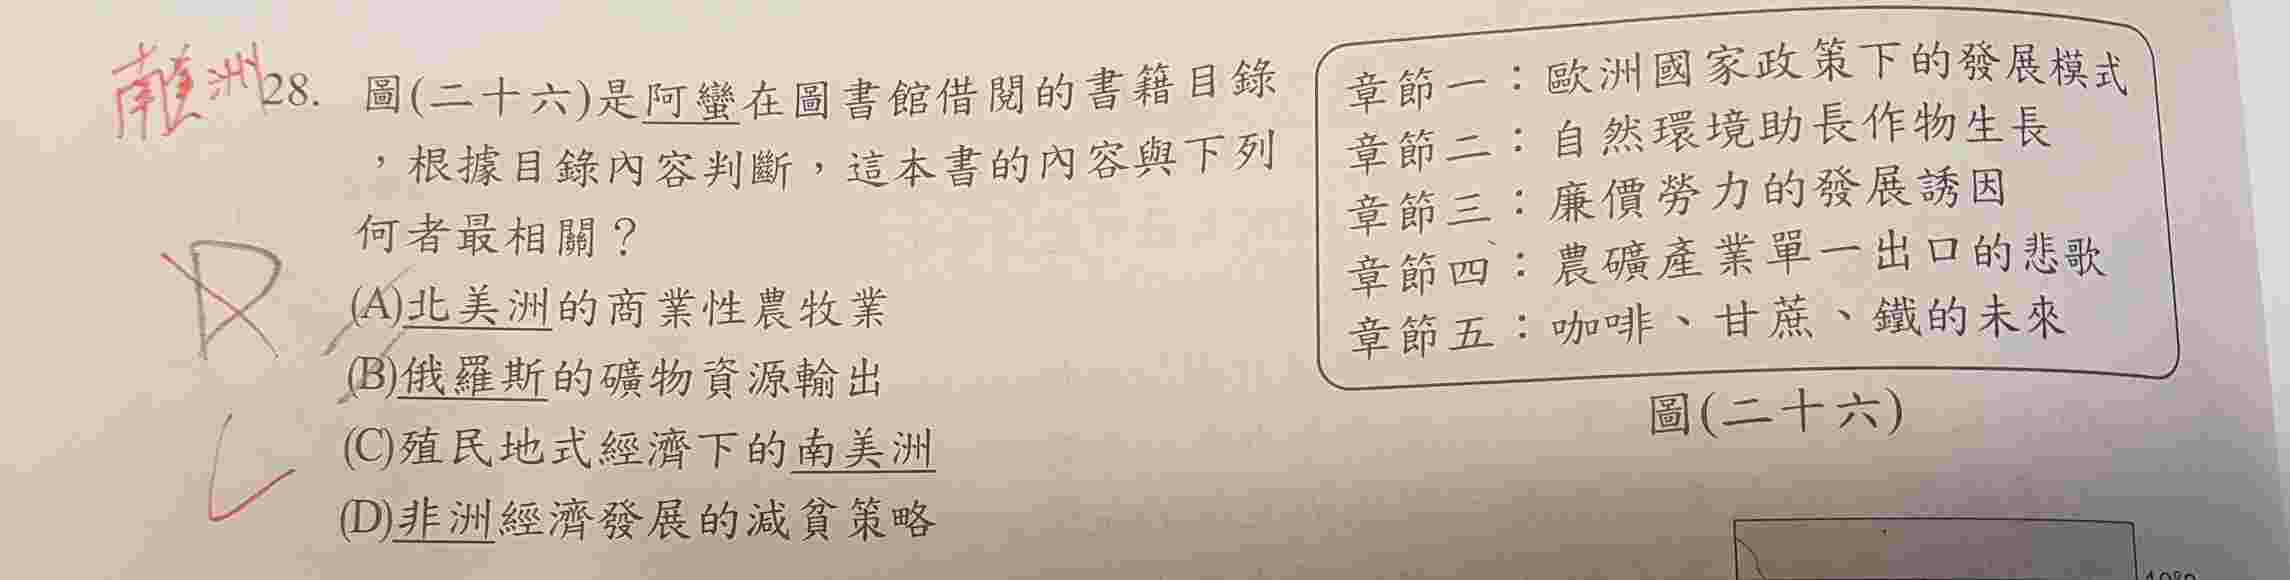 28. 圖(二十六)是阿蠻在圖書館借閱的書籍目錄
，根據目錄內容判斷，這本書的內容與下列
何者最相關？
(A)北美洲的商業性農牧業
(B)俄羅斯的礦物資源輸出
(C)殖民地式經濟下的南美洲
(D)非洲經濟發展的減貧策略
章節一：歐洲國家政策下的發展模式
章節二：自然環境助長作物生長
章節三：廉價勞力的發展誘因
章節四：農礦產業單一出口的悲歌
章節五：咖啡、甘蔗、鐵的未來
圖(二十六)